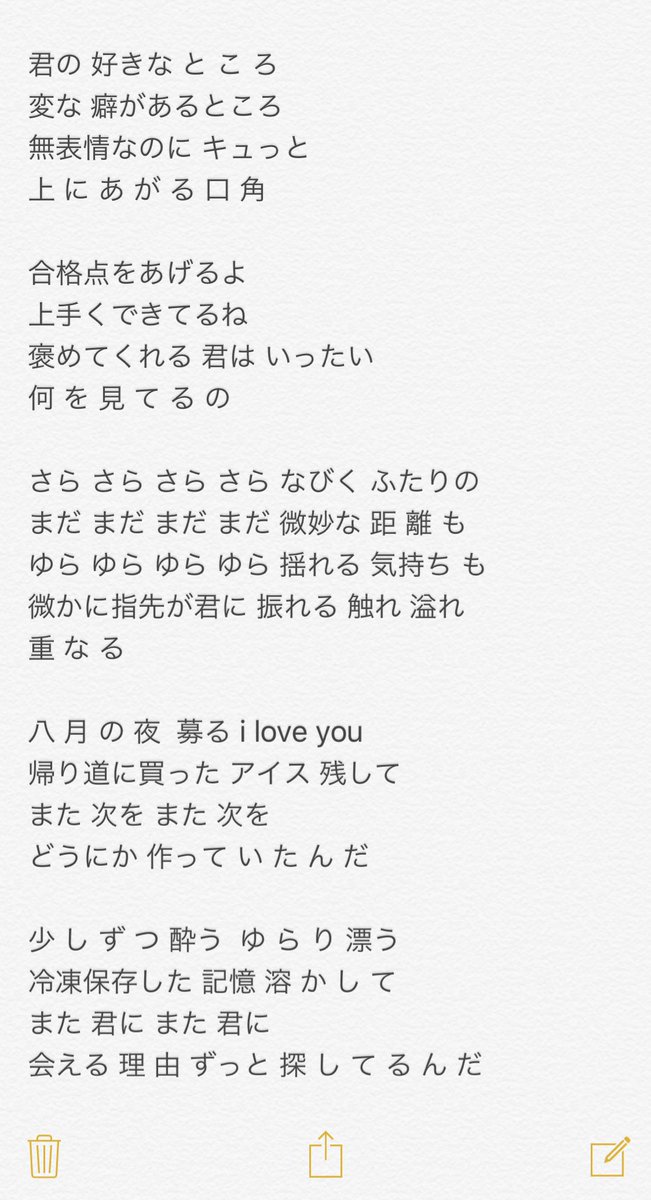 君の 好きな と こ ろ
変な 癖があるところ
無表情なのに キュっと
上 に あ が る 口 角
合格点をあげるよ
上手くできてるね
褒めてくれる 君は いったい
何 を 見 て る の
さら さら さら さら なびく ふたりの
まだ まだ まだ まだ 微妙な 距 離 も
ゆら ゆら ゆら ゆら 揺れる 気持ち も
微かに指先が君に 振れる 触れ 溢れ
重 な る
八 月 の 夜  募る i love you
帰り道に買った アイス 残して
また 次を また 次を
どうにか 作って い た ん だ
少 し ず つ 酔う  ゆ ら り 漂う
冷凍保存した 記憶 溶 か し て
また 君に また 君に
会える 理 由 ずっと 探 し て る ん だ